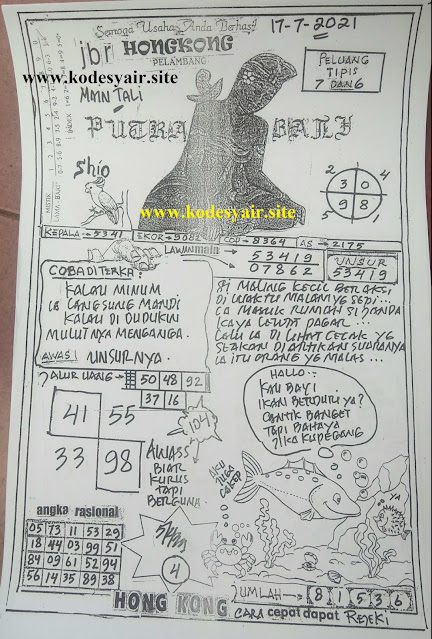 Semoga Usaha Anda Berhasil
17-7-2021
jbr HONGKONG
PELAMBANG
www.kodesyair.site
MAN TALI
PELUANG
TIPIS
7 DAN 6
PUTRA BALI
Shio
3 0
9 8
4
1
www.kodesyair.site
KEPALA → 5341
EKOR → 9082
COP → 8364
AS → 2175
LAWAN main
53419
07862
UNSUR
53419
COBA DI TERKA:
KALAU MINUM
IA LANGSUNG MANDI
KALAU DI DUDUKIN
MULUTNYA MENGANGA.
AWAS! UNSURNYA.
SI MALING KECIL BERAKSI
DI WAKTU MALAM YG SEPI...
IA MASUK RUMAH SI JANDA
KAYA LEWAT PAGAR...
LALU IA DI LIHAT CECAK YG
SEAKAN DI ARTIKAN SUARANYA
IA ITU ORANG YG MALAS...
JALUR UANG →
50 48 92
37 16
41 55
33 98
104
AWASS
BIAR
KURUS
TAPI
BERGUNA
HALLO..
KAU BAYI
IKAN BERDURI YA?
CANTIK BANGET
TAPI BAHAYA
JIKA KUPEGANG
AKU
JUGA
CAKEP
YA
angka rasional
05 73 11 53 29
18 44 03 99 51
84 09 61 52 94
56 14 35 89 38
4
JUMLAH → 8 1 5 3 6
HONG KONG
CARA cepat dapat REJEKI